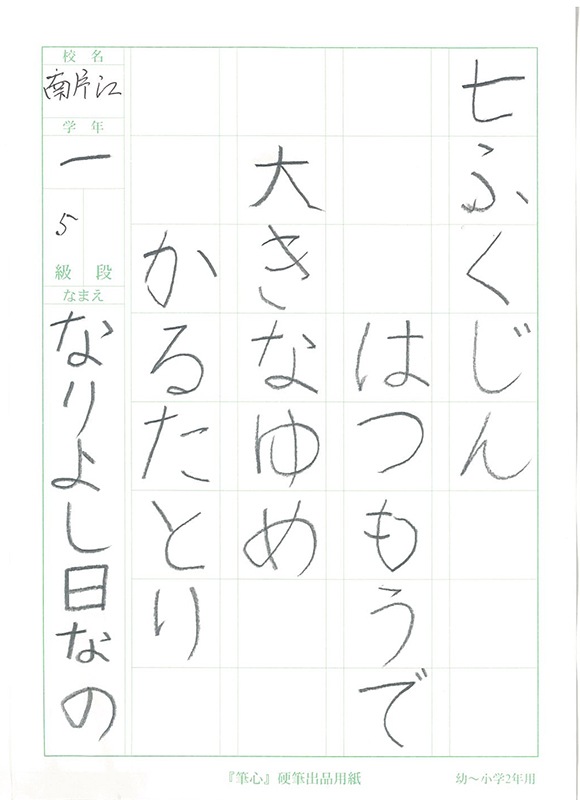 七ふくじん
はつもうで
大きなゆめ
かるたとり
校名
南片江
学年
一
5
級 段
なまえ
なりよし日なの
『筆心』硬筆出品用紙
幼〜小学2年用